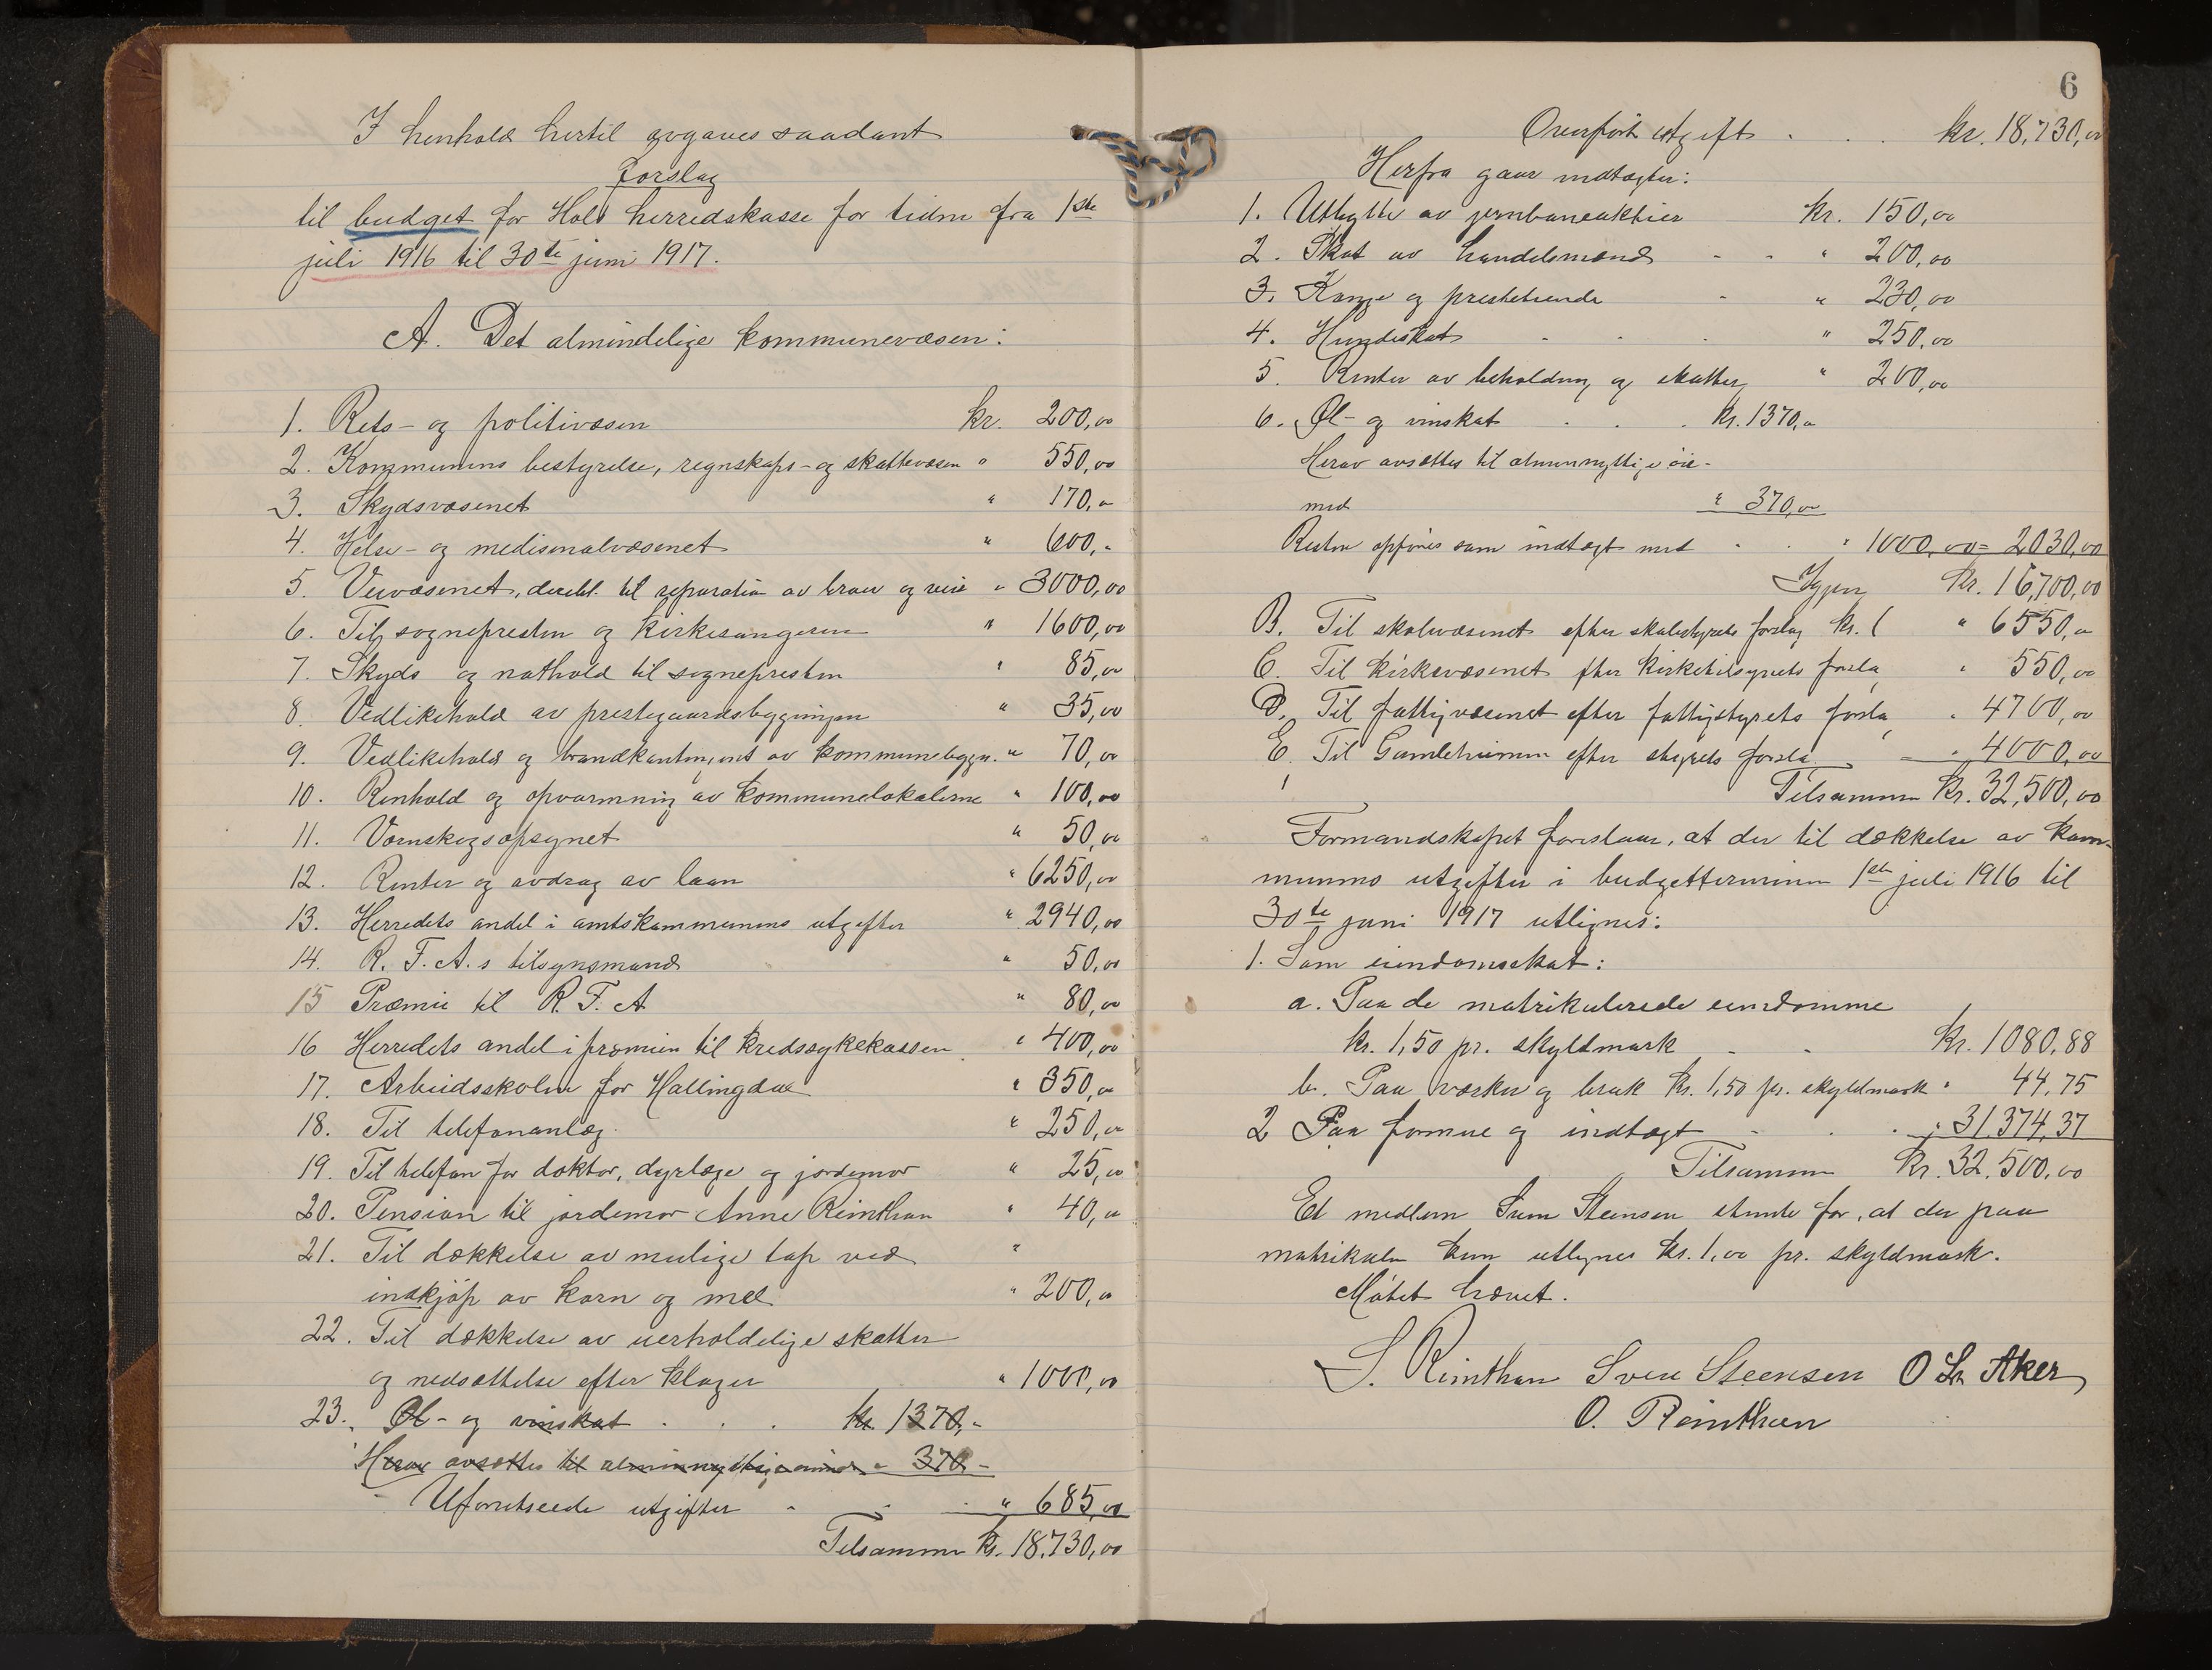 I henhold hertil avgaves saadant
Forslag
til budget for Hols herredskasse for tiden fra 1ste
juli 1916 til 30te juni 1917.
A. Det almindelige kommunevæsen:
1. Rets- og politivæsen kr. 200,00
2. Kommunens bestyrelse, regnskaps- og skattevæsen " 550,00
3. Skydsvæsenet " 170,00
4. Helse- og medisinalvæsenet " 600,-
5. Veivæsenet, deribl. til reparation av broer og veie " 3000,00
6. Til sognepresten og kirkesangeren " 1600,00
7. Skyds og nathold til sognepresten " 85,00
8. Vedlikehold av prestegaardsbygningen " 35,00
9. Vedlikehold og brandkontingent av kommunebygn. " 70,00
10. Renhold og opvarmning av kommunelokalerne " 100,00
11. Vernskogsopsynet " 50,00
12. Renter og avdrag av laan " 6250,00
13. Herredets andel i amtskommunens utgifter " 2940,00
14. R. F. A.s tilsynsmand " 50,00
15 Præmie til R. F. A. " 80,00
16 Herredets andel i præmien til kredssykekassen " 400,00
17. Arbeidsskolen for Hallingdal " 350,00
18. Til telefonanlæg " 250,00
19. Til telefon for doktor, dyrlæge og jordemor " 25,00
20. Pension til jordemor Anne Reinthon " 40,00
21. Til dækkelse av mulige tap ved "
indkjøp av korn og mel " 200,00
22. Til dækkelse av uerholdelige skatter
og nedsættelse efter klager " 1000,00
23. Øl- og vinskat . . . kr. 1370,-
Herav avsættes til almennyttige øiemed " 370-
Uforutseede utgifter - - - " 685,00
Tilsammen kr. 18.730,00
6
Overført utgift . . . kr. 18.730,00
Herfra gaar indtægter:
1. Utbytte av jernbaneaktier kr. 150,00
2. Skat av handelsmænd - - " 200,00
3. Korge og prestetiende - " 230,00
4. Hundeskat - - - " 250,00
5. Renter av beholdning og skatter " 200,00
6. Øl- og vinskat . . . kr. 1370,00
Herav avsættes til almennyttige øie-
med " 370,00
Resten opføres som indtægt med - - " 1000,00 = 2030,00
Igjen kr. 16,700,00
B. Til skolevæsenet efter skolestyrets forslag kr. ( " 6550,00
C. Til kirkevæsenet efter kirketilsynets forslag " 550,00
D. Til fattigvæsenet efter fattigstyrets forslag " 4700,00
E. Til Gamlehimmen efter styrets forslag " 4000,00
Tilsammen kr. 32,500,00
Formandskapet foreslaar, at der til dækkelse av kom-
munens utgifter i budgetterminen 1ste juli 1916 til
30te juni 1917 utlignes:
1. Som eiendomsskat:
a. Paa de matrikulerede eiendomme
kr. 1,50 pr. skyldmark - - kr. 1080.88
b. Paa verker og bruk kr. 1,50 pr. skyldmark " 44,75
2 Paa formue og indtægt - . . " 31.374,37
Tilsammen kr. 32.500,00
Et medlem Sven Steensen stemte for, at der paa
matrikulen kun utlignes kr. 1,00 pr. skyldmark.
Møtet hævet.
S. Reinthon Sven Steensen O Ln Aker
O. Reinthon